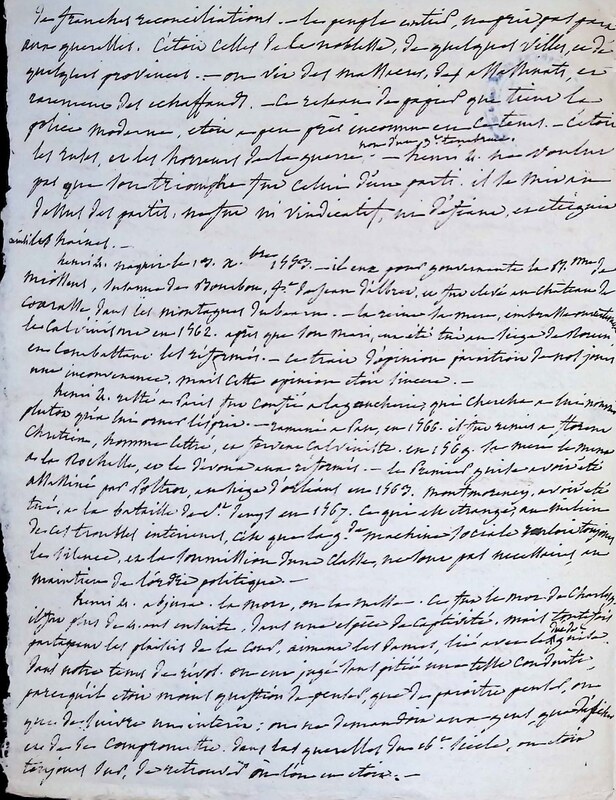 de franches reconciliations. — le peuple entier, ne prit pas part
aux querelles. C'etoit celles de la noblesse, de quelques villes, et de
quelques provinces. — on vit des massacres, des assassinats, et
rarement des echaffauds. — Ce reseau de papier que tient la
police moderne, etoit a peu près inconnu en ce tems. — C'etoit
les ruses, et les horreurs de la guerre. — henri 4. ne voulut
pas que son triomphe fut celui d'un parti. il se mit au
dessus des partis, ne fut ni vindicatif, ni et eteignit
les haines. —
henri 4. naquit le 13. Xbre 1553. — il eut pour gouvernante la
miossens, Susanne de Bourbon, de Jean d'albret, et fut elevé au chateau de
Coarasse dans les montagnes du bearn. — la reine sa mere, embrassa
le Calvinisme en 1562. après que son mari, eut été tué au siege de Rouen,
en combattant les réformés. — Ce trait d'opinion paroitroit de nos jours
une inconvenance, mais cette opinion etoit sincere. —
henri 4. resté a Paris fut confié a la gaucherie, qui chercha a lui
plutot qu'a lui orner l'esprit. — ramené a Pau, en 1566. il fut remis a florent
Chretien, homme lettré, et fervent calviniste. en 1569. sa mere le mena
a la Rochelle, et le devoua aux réformés. — le avoit été
assassiné par Poltrot, au siege d'orléans en 1563. montmorency, avoit été
tué, a la bataille de St. Denys en 1567. Ce qui est etrange, au milieu
de ces troubles interieurs, c'est que la gde machine sociale toujours
le silence, et la soumission d'une classe, ne sont pas necessaires, au
maintien de l'ordre politique. —
henri 4. abjura. la mort, ou la messe. Ce fut le mot de Charles,
il fut plus de 4. ans ensuite, dans une espèce de captivité. mais
partageant les plaisirs de la Cour, aimant les dames, lié avec le guise.
dans notre tems de révol. on eut jugé sans pitié une telle conduite,
parcequ'il etoit moins question de penser, que de paroitre penser, ou
que de suivre un interêt; on ne demandoit aux gens, que
et de se compromettre. dans les querelles du 16e. siècle, on etoit
toujours sur, de retrouver où l'on en etoit. —